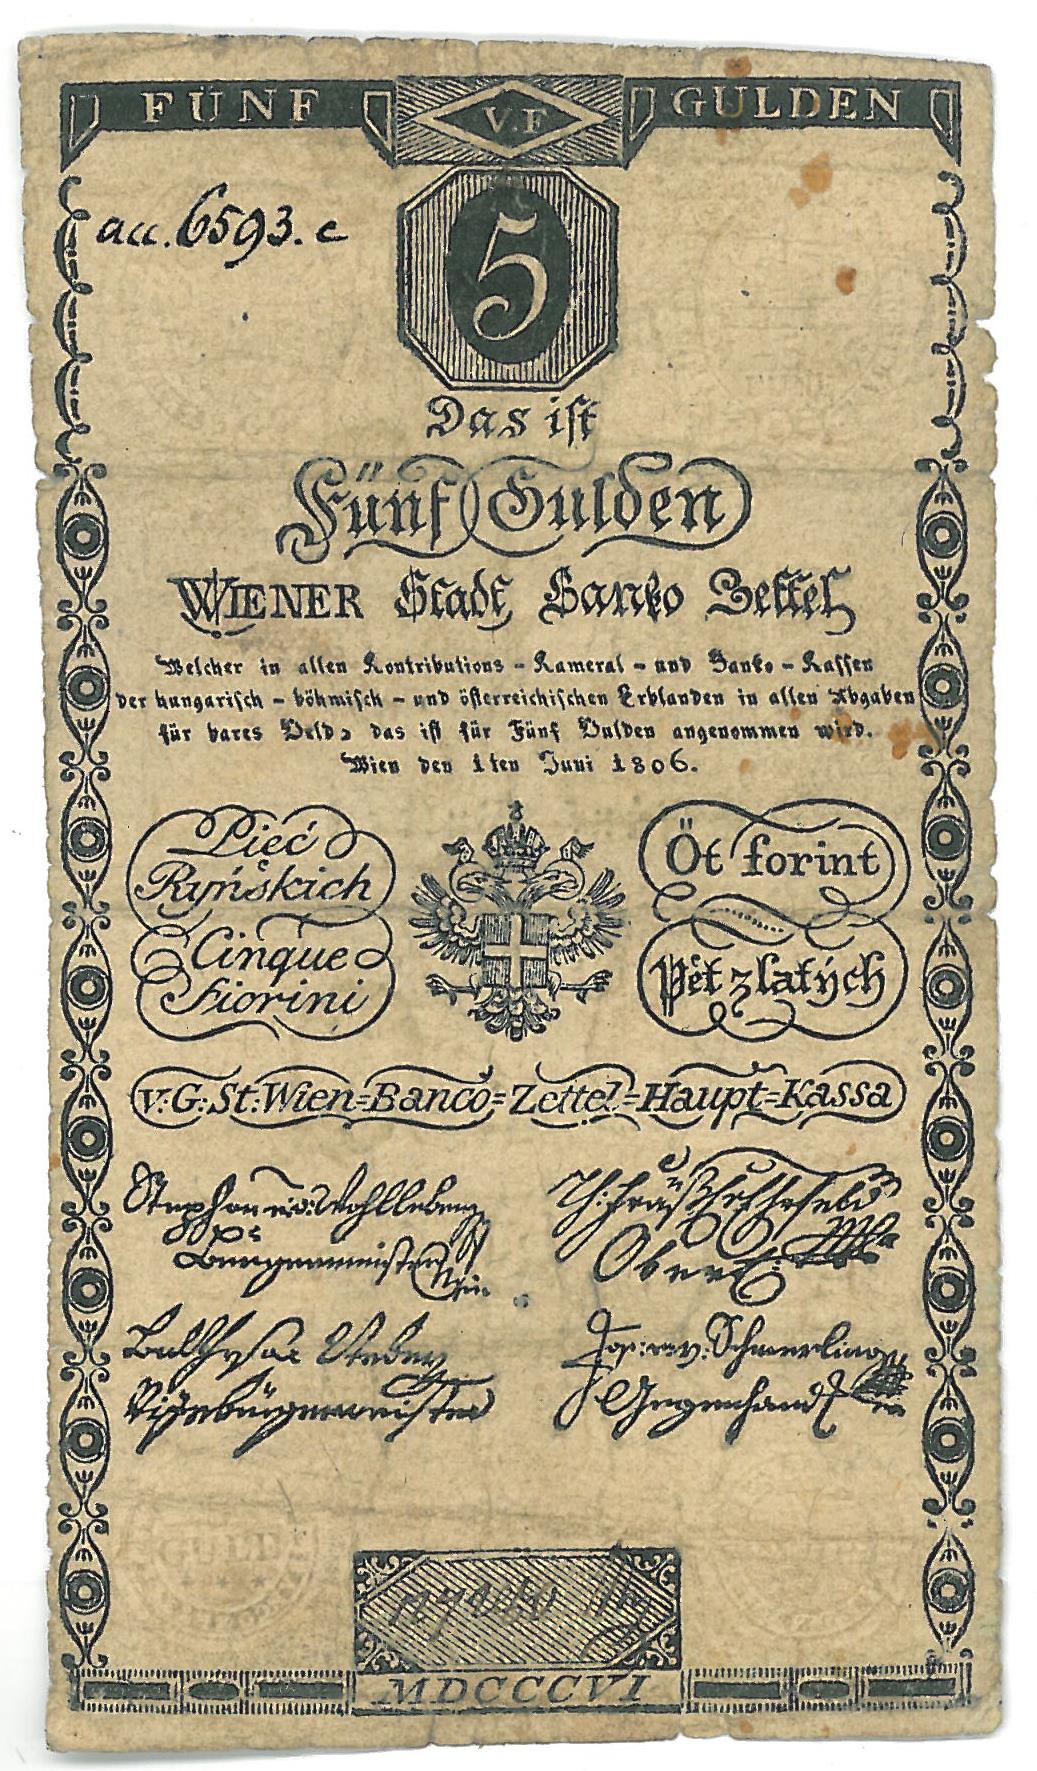 FÜNF V.F GULDEN
acc. 6593. c
5
Das ist
Fünf Gulden
WIENER Stadt Banko Zettel
Welcher in allen Kontributions - Kameral - und Banko - Kassen
der hungarisch - böhmisch - und österreichischen Erblanden in allen Abgaben
für bares Geld, das ist für Fünf Gulden angenommen wird.
Wien den 1ten Juni 1806.
Pięć
Ryńskich
Cinque
Fiorini
Öt forint
Pět zlatých
V: G: St: Wien=Banco=Zettel=Haupt=Kassa
Stephan v: Wohlleben
Burgermeister
Ober
Jos: v: Schmerling
Gegenhand
Vizebürgermeister
MDCCCVI